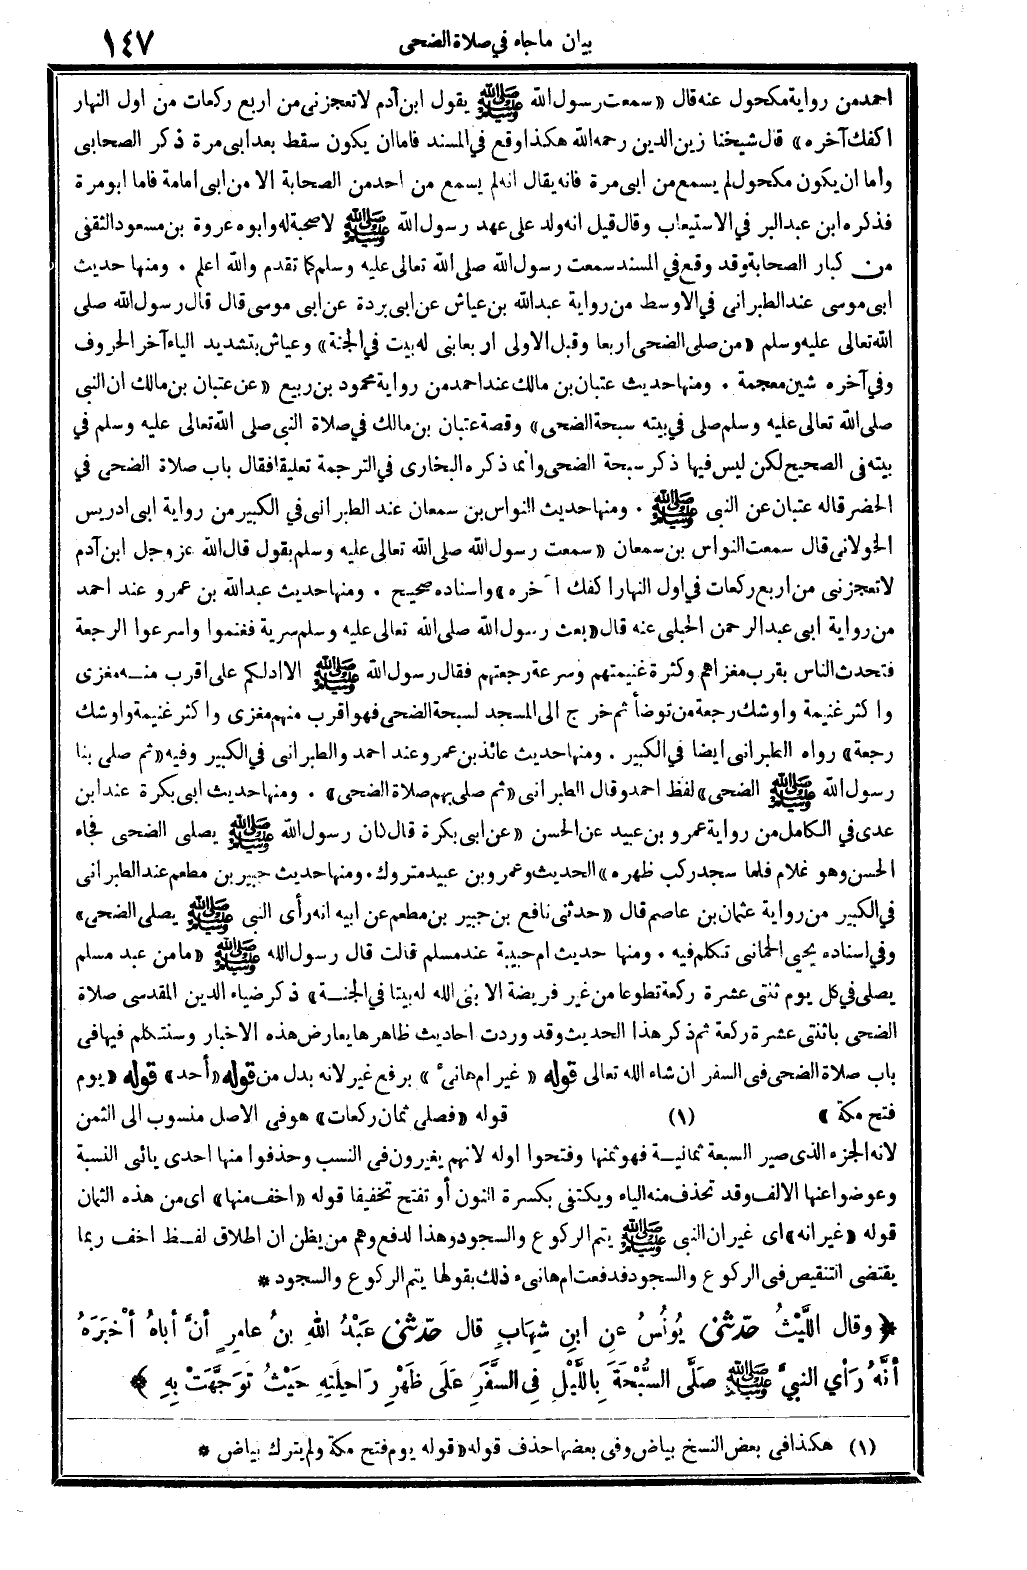 بيان ماجاء في صلاة الضحى
١٤٧
احمد من رواية مكحول عنه قال «سمعت رسول الله ﷺ يقول ابن آدم لا تعجزني من اربع ركعات من اول النهار
اكفك آخره» قال شيخنا زين الدين رحمه الله هكذا وقع في المسند فاما ان يكون سقط بعد ابي مرة ذكر الصحابي
واما ان يكون مكحول لم يسمع من ابي مرة فانه يقال انه لم يسمع من احد من الصحابة الا من ابي امامة فاما ابو مرة
فذكره ابن عبد البر في الاستيعاب وقال قيل انه ولد على عهد رسول الله ﷺ لا صحبة له وابوه عروة بن مسعود الثقفي
من كبار الصحابة وقد وقع في المسند سمعت رسول الله صلى الله تعالى عليه وسلم كما تقدم والله اعلم . ومنها حديث
ابي موسى عند الطبراني في الاوسط من رواية عبد الله بن عياش عن ابي بردة عن ابي موسى قال قال رسول الله صلى
الله تعالى عليه وسلم «من صلى الضحى اربعا وقبل الاولى اربعا بني له بيت في الجنة» وعياش بتشديد الياء آخر الحروف
وفي آخره شين معجمة . ومنها حديث عتبان بن مالك عند احمد من رواية محمود بن ربيع «عن عتبان بن مالك ان النبي
صلى الله تعالى عليه وسلم صلى في بيته سبحة الضحى» وقصة عتبان بن مالك في صلاة النبي صلى الله تعالى عليه وسلم في
بيته في الصحيح لكن ليس فيها ذكر سبحة الضحى وانما ذكره البخاري في الترجمة تعليقا فقال باب صلاة الضحى في
الحضر قاله عتبان عن النبي ﷺ . ومنها حديث النواس بن سمعان عند الطبراني في الكبير من رواية ابي ادريس
الخولاني قال سمعت النواس بن سمعان «سمعت رسول الله صلى الله تعالى عليه وسلم يقول قال الله عز وجل ابن آدم
لا تعجزني من اربع ركعات في اول النهار اكفك آخره» واسناده صحيح . ومنها حديث عبد الله بن عمرو عند احمد
من رواية ابي عبد الرحمن الحبلي عنه قال «بعث رسول الله صلى الله تعالى عليه وسلم سرية فغنموا واسرعوا الرجعة
فتحدث الناس بقرب مغزاهم وكثرة غنيمتهم وسرعة رجعتهم فقال رسول الله ﷺ الا ادلكم على اقرب منه مغزى
واكثر غنيمة واوشك رجعة من توضأ ثم خرج الى المسجد لسبحة الضحى فهو اقرب منهم مغزى واكثر غنيمة واوشك
رجعة» رواه الطبراني ايضا في الكبير . ومنها حديث عائذ بن عمرو عند احمد والطبراني في الكبير وفيه «ثم صلى بنا
رسول الله ﷺ الضحى» لفظ احمد وقال الطبراني «ثم صلى بهم صلاة الضحى» . ومنها حديث ابي بكرة عند ابن
عدي في الكامل من رواية عمرو بن عبيد عن الحسن «عن ابي بكرة قال كان رسول الله ﷺ يصلى الضحى فجاء
الحسن وهو غلام فلما سجد ركب ظهره» الحديث وعمرو بن عبيد متروك . ومنها حديث جبير بن مطعم عند الطبراني
في الكبير من رواية عثمان بن عاصم قال «حدثني نافع بن جبير بن مطعم عن ابيه انه رأى النبي ﷺ يصلى الضحى»
وفي اسناده يحيى الحماني تكلم فيه . ومنها حديث ام حبيبة عند مسلم قالت قال رسول الله ﷺ «ما من عبد مسلم
يصلى في كل يوم ثنتى عشرة ركعة تطوعا من غير فريضة الا بنى الله له بيتا في الجنة» ذكر ضياء الدين المقدسي صلاة
الضحى باثنتى عشرة ركعة ثم ذكر هذا الحديث وقد وردت احاديث ظاهرها يعارض هذه الاخبار وسنتكلم فيها في
باب صلاة الضحى في السفر ان شاء الله تعالى قوله «غير ام هانىء» برفع غير لانه بدل من قوله «أحد» قوله «يوم
فتح مكة» (١) قوله «فصلى ثمان ركعات» هو في الاصل منسوب الى الثمن
لانه الجزء الذي صير السبعة ثمانية فهو ثمنها وفتحوا اوله لانهم يغيرون في النسب وحذفوا منها احدى يائى النسبة
وعوضوا عنها الالف وقد تحذف منه الياء ويكتفى بكسرة النون أو تفتح تخفيفا قوله «اخف منها» اى من هذه الثمان
قوله «غير انه» اى غير ان النبي ﷺ يتم الركوع والسجود وهذا لدفع وهم من يظن ان اطلاق لفظ اخف ربما
يقتضى التنقيص في الركوع والسجود فدفعت ام هانىء ذلك بقولها يتم الركوع والسجود *
﴿ وقال اللَّيْثُ حدّثني يُونُسُ عنِ ابنِ شِهَابٍ قال حدّثني عَبْدُ اللهِ بنُ عامِرٍ أنَّ أباهُ أخْبَرَهُ
أنَّهُ رَأي النبيَّ ﷺ صَلَّى السُّبْحَةَ بِاللَّيْلِ فِي السَّفَرِ عَلَى ظَهْرِ رَاحِلَتِهِ حَيْثُ تَوَجَّهَتْ بِهِ ﴾
(١) هكذا في بعض النسخ بياض وفي بعضها حذف قوله «قوله يوم فتح مكة ولم يترك بياض *